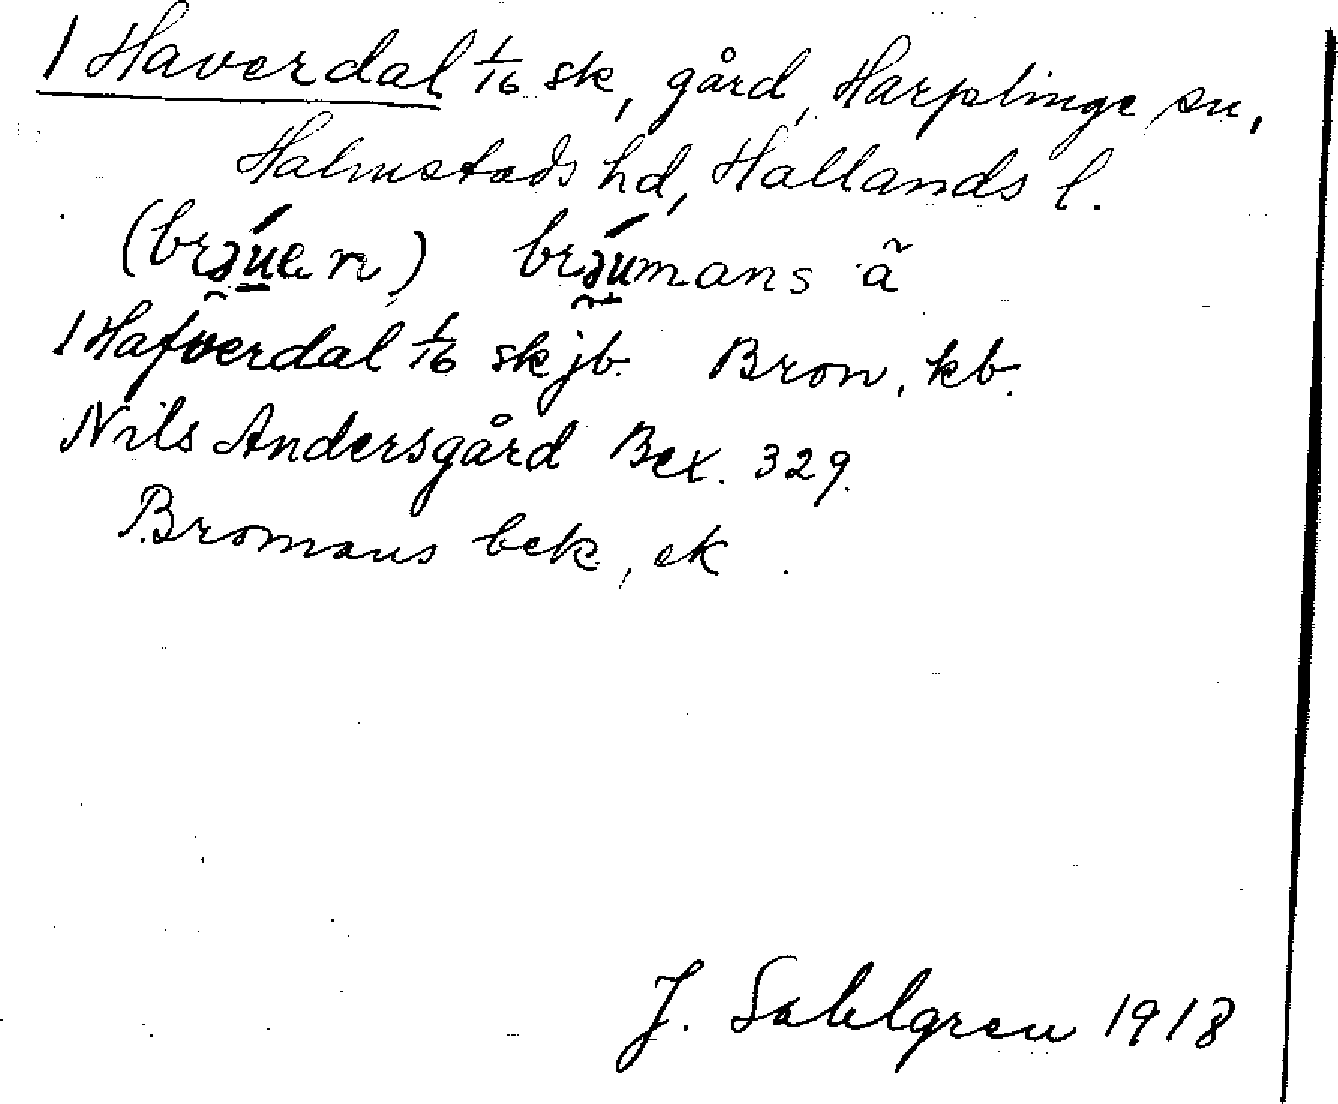 1 Haverdal 1/16 sk, gård, Harplinge sn,
Halmstads hd, Hallands l.
(brəu̲en) brəu̲mans ã
1 Hafverdal 1/16 sk jb. Bron, kb.
Nils Andersgård Bex. 329.
Bromans bek, ek.
J. Sahlgren 1918